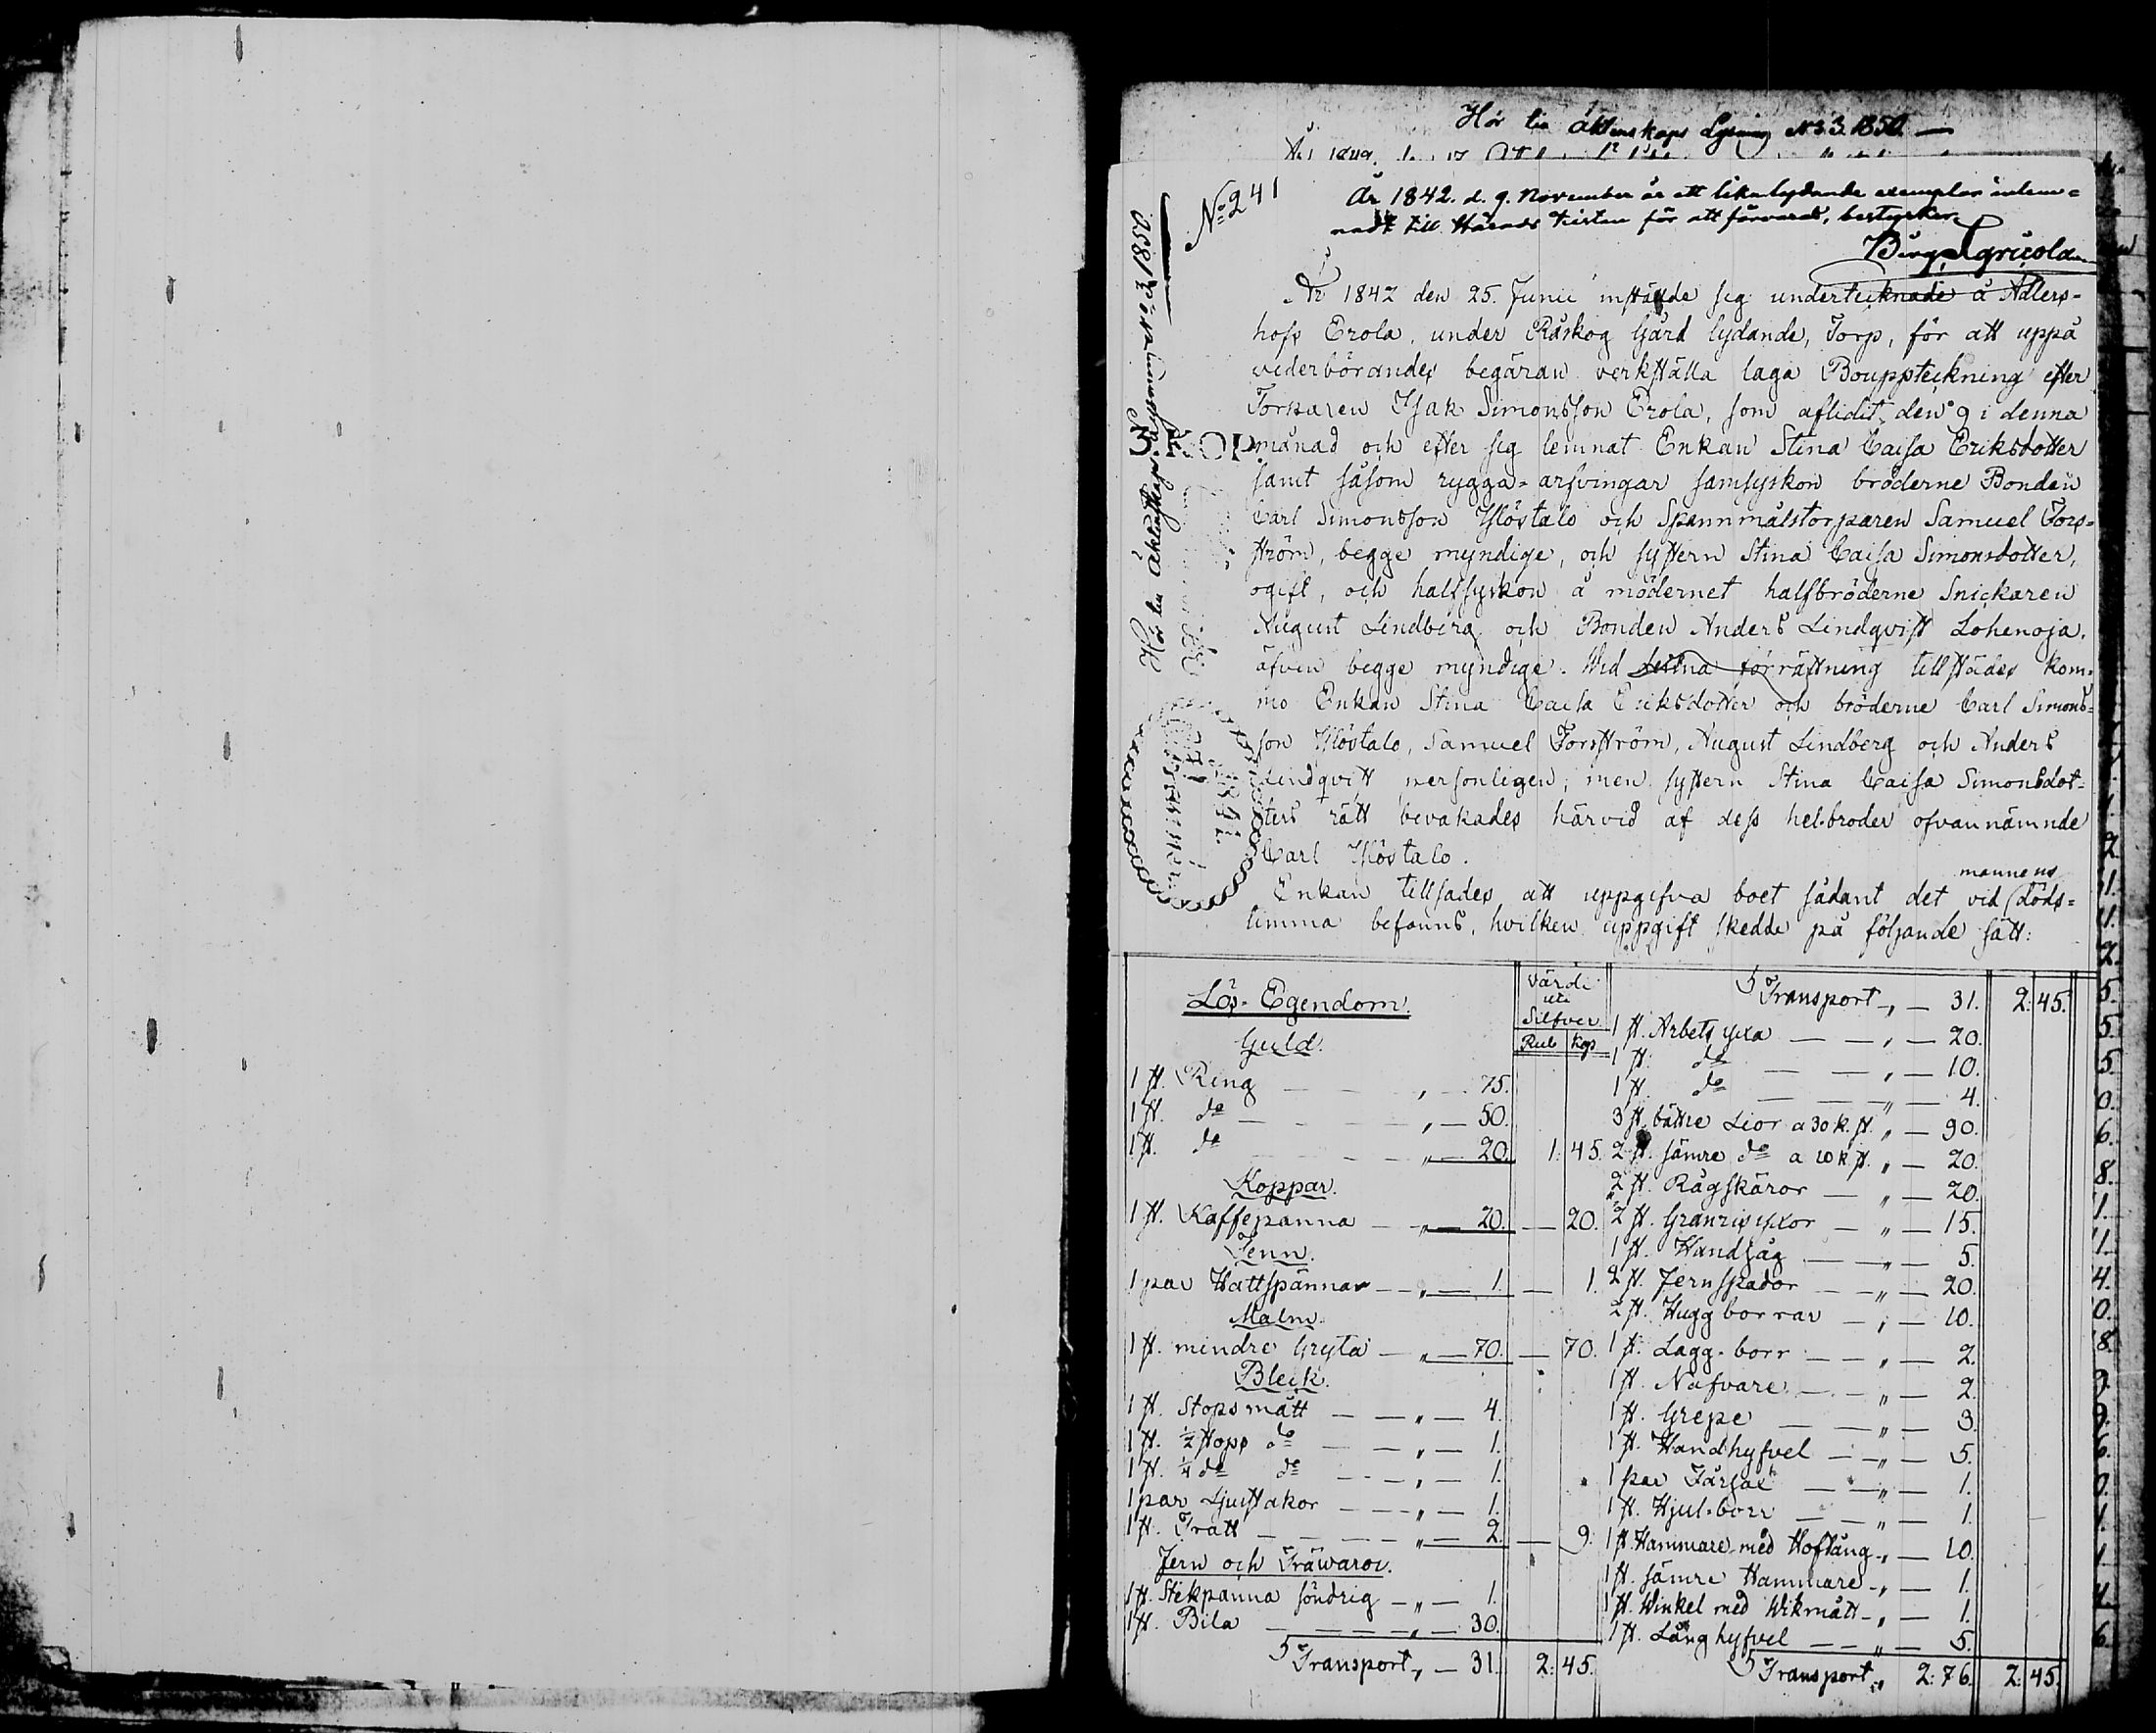 Hör till Äktenskaps Lysning N 3. 1850.
N:o 241
År 1842. d. 9. November är ett likalydande exemplar inlem=
nadt till Härads Kistan för att förvaras, bestyrker
Birg. Agricola
Hör till Äktenskaps Lysning N:o 3/1850
År 1842 den 25. Junii instälde sig undertecknade å Adlers=
hofs Erola, under Råskog Gård lydande, Torp, för att uppå
vederbörandes begäran verkställa laga Bouppteckning efter
Torparen Isak Simonsson Erola, som aflidit den 9 i denna
månad och efter sig lemnat Enkan Stina Caisa Eriksdotter
samt såsom rygga=arfvingar samsyskon bröderne Bonden
Carl Simonsson Yliöstalo och Spannmålstorparen Samuel Fors=
ström, begge myndige, och systern Stina Caisa Simonsdotter,
ogift, och halfsyskon å mödernet halfbröderne Snickaren
August Lindberg och Bonden Anders Lindqvist Lohenoja,
äfven begge myndige. Wid denna förrättning tillstädes kom=
mo Enkan Stina Caisa Eriksdotter och bröderne Carl Simons=
son Yliöstalo, Samuel Forsström, August Lindberg och Anders
Lindqvist personligen; men systern Stina Caisa Simonsdot=
ters rätt bevakades härvid af dess helbroder ofvannämnde
Carl Yliöstalo.
Enkan tillsades att uppgifva boet sådant det vid mannens döds=
timma befanns, hvilken uppgift skedde på följande sätt:
Lös-Egendom.
Värde
uti
Silfver
Rub Kop
Guld.
1 st. Ring — " — 75.
1 st. d:o — " — 50.
1 st. d:o — " — 20. 1. 45.
Koppar.
1 st. Kaffepanna — " — 20. — 20.
Tenn.
1 par Hattspännar — " — 1. — 1.
Malm.
1 st. mindre Gryta — " — 70. — 70.
Bleck.
1 st. Stopsmått — " — 4.
1 st. ½ stops d:o — " — 1.
1 st. ¼ d:o d:o — " — 1.
1 par Ljusstakor — " — 1.
1 st. Tratt — " — 2. — 9.
Jern och Träwaror.
1 st. Stekpanna söndrig — " — 1.
1 st. Bila — " — 30.
Transport " — 31. 2. 45.
Transport " — 31. 2. 45.
1 st. Arbets yxa — " — 20.
1 st. d:o — " — 10.
1 st. d:o — " — 4.
3 st. bättre Lior a 30 k. st. " — 90.
2 st. sämre d:o a 10 k. st. " — 20.
2 st. Rågskäror — " — 20.
2 st. Granrisyxor — " — 15.
1 st. Handsåg — " — 5.
2 st. Jernspador — " — 20.
2 st. Huggborrar — " — 10.
1 st. Lagg-borr — " — 2.
1 st. Nafvare — " — 2.
1 st. Grepe — " — 3.
1 st. Handhyfvel — " — 5.
1 par Fårsax — " — 1.
1 st. Hjul-borr — " — 1.
1 st. Hammare med Hoftång " — 10.
1 st. sämre Hammare — " — 1.
1 st. Winkel med Wikmått — " — 1.
1 st. Långhyfvel — " — 5.
Transport " 2. 76. 2. 45.